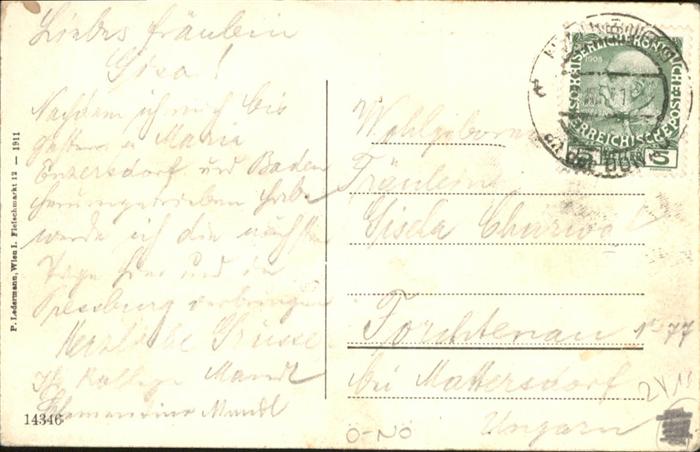 Liebes Fräulein
Gisa!
Nachdem ich mich bis
gestern in Maria
Enzersdorf und Baden
herumgetrieben habe
werde ich die nächsten
Tage hier und in
Pressburg verbringen
Herzliche Grüsse
Ihr Kollege Mandl
Mandl
14346
P. Ledermann, Wien I. Fleischmarkt 12 — 1911
1908
5
Wohlgeboren
Fräulein
Gisela
Forchtenau No 77
bei Mattersdorf
Ungarn
Ö-NÖ